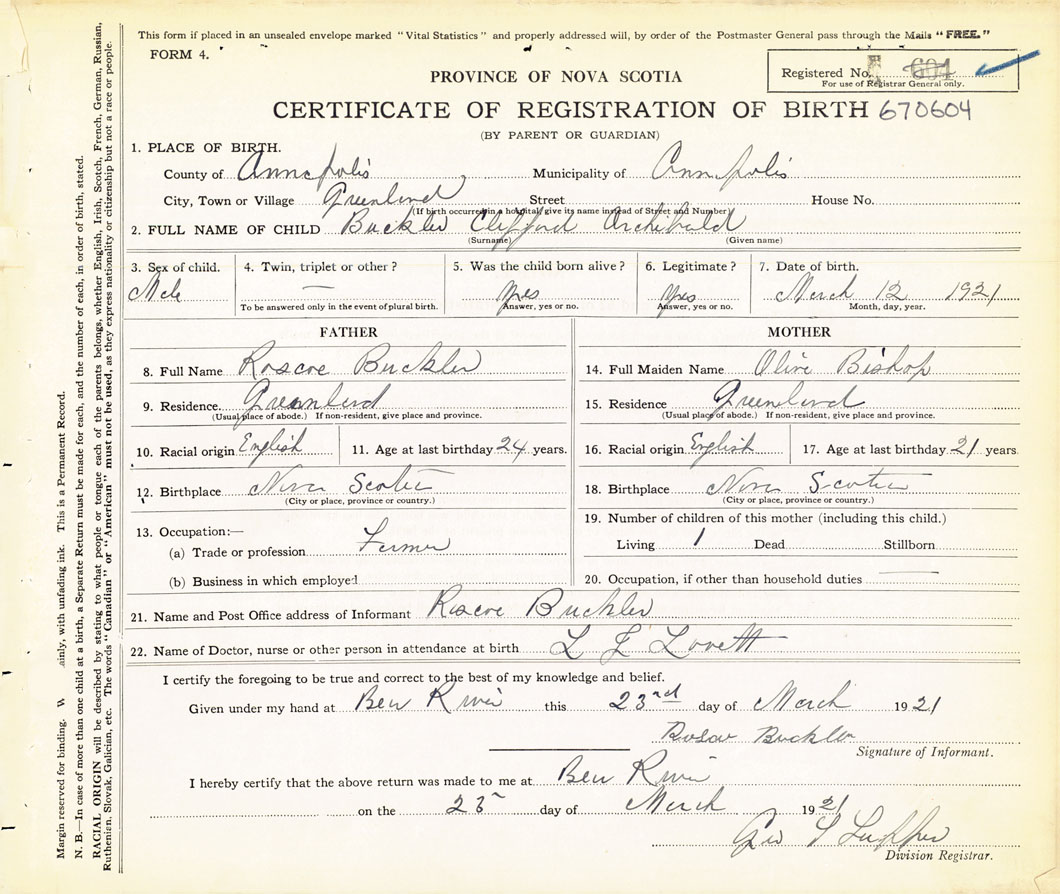 This form if placed in an unsealed envelope marked "Vital Statistics" and properly addressed will, by order of the Postmaster General pass through the Mails "FREE."
FORM 4.
Registered No. 604
For use of Registrar General only.
PROVINCE OF NOVA SCOTIA
CERTIFICATE OF REGISTRATION OF BIRTH 670604
(BY PARENT OR GUARDIAN)
1. PLACE OF BIRTH.
County of Annapolis Municipality of Annapolis
City, Town or Village Greenland Street House No.
(If birth occurred in a hospital give its name instead of Street and Number)
2. FULL NAME OF CHILD Buckler Clifford Archibald
(Surname) (Given name)
3. Sex of child. 4. Twin, triplet or other? 5. Was the child born alive? 6. Legitimate? 7. Date of birth.
Male — yes yes March 12 1921
To be answered only in the event of plural birth. Answer, yes or no. Answer, yes or no. Month, day, year.
FATHER
8. Full Name Roscoe Buckler
9. Residence Greenland
(Usual place of abode.) If non-resident, give place and province.
10. Racial origin English 11. Age at last birthday 24 years.
12. Birthplace Nova Scotia
(City or place, province or country.)
13. Occupation:—
(a) Trade or profession Farmer
(b) Business in which employed
MOTHER
14. Full Maiden Name Olive Bishop
15. Residence Greenland
(Usual place of abode.) If non-resident, give place and province.
16. Racial origin English 17. Age at last birthday 21 years.
18. Birthplace Nova Scotia
(City or place, province or country.)
19. Number of children of this mother (including this child.)
Living 1 Dead Stillborn
20. Occupation, if other than household duties —
21. Name and Post Office address of Informant Roscoe Buckler
22. Name of Doctor, nurse or other person in attendance at birth L L Lovett
I certify the foregoing to be true and correct to the best of my knowledge and belief.
Given under my hand at Bear River this 23rd day of March 1921
Roscoe Buckler
Signature of Informant.
I hereby certify that the above return was made to me at Bear River
on the 25 day of March 1921
Geo
Division Registrar.
Margin reserved for binding. W ainly, with unfading ink. This is a Permanent Record.
N. B.—In case of more than one child at a birth, a Separate Return must be made for each, and the number of each, in order of birth, stated.
RACIAL ORIGIN will be described by stating to what people or tongue each of the parents belongs, whether English, Irish, Scotch, French, German, Russian,
Ruthenian, Slovak, Galician, etc. The words "Canadian" or "American" must not be used, as they express nationality or citizenship but not a race or people.